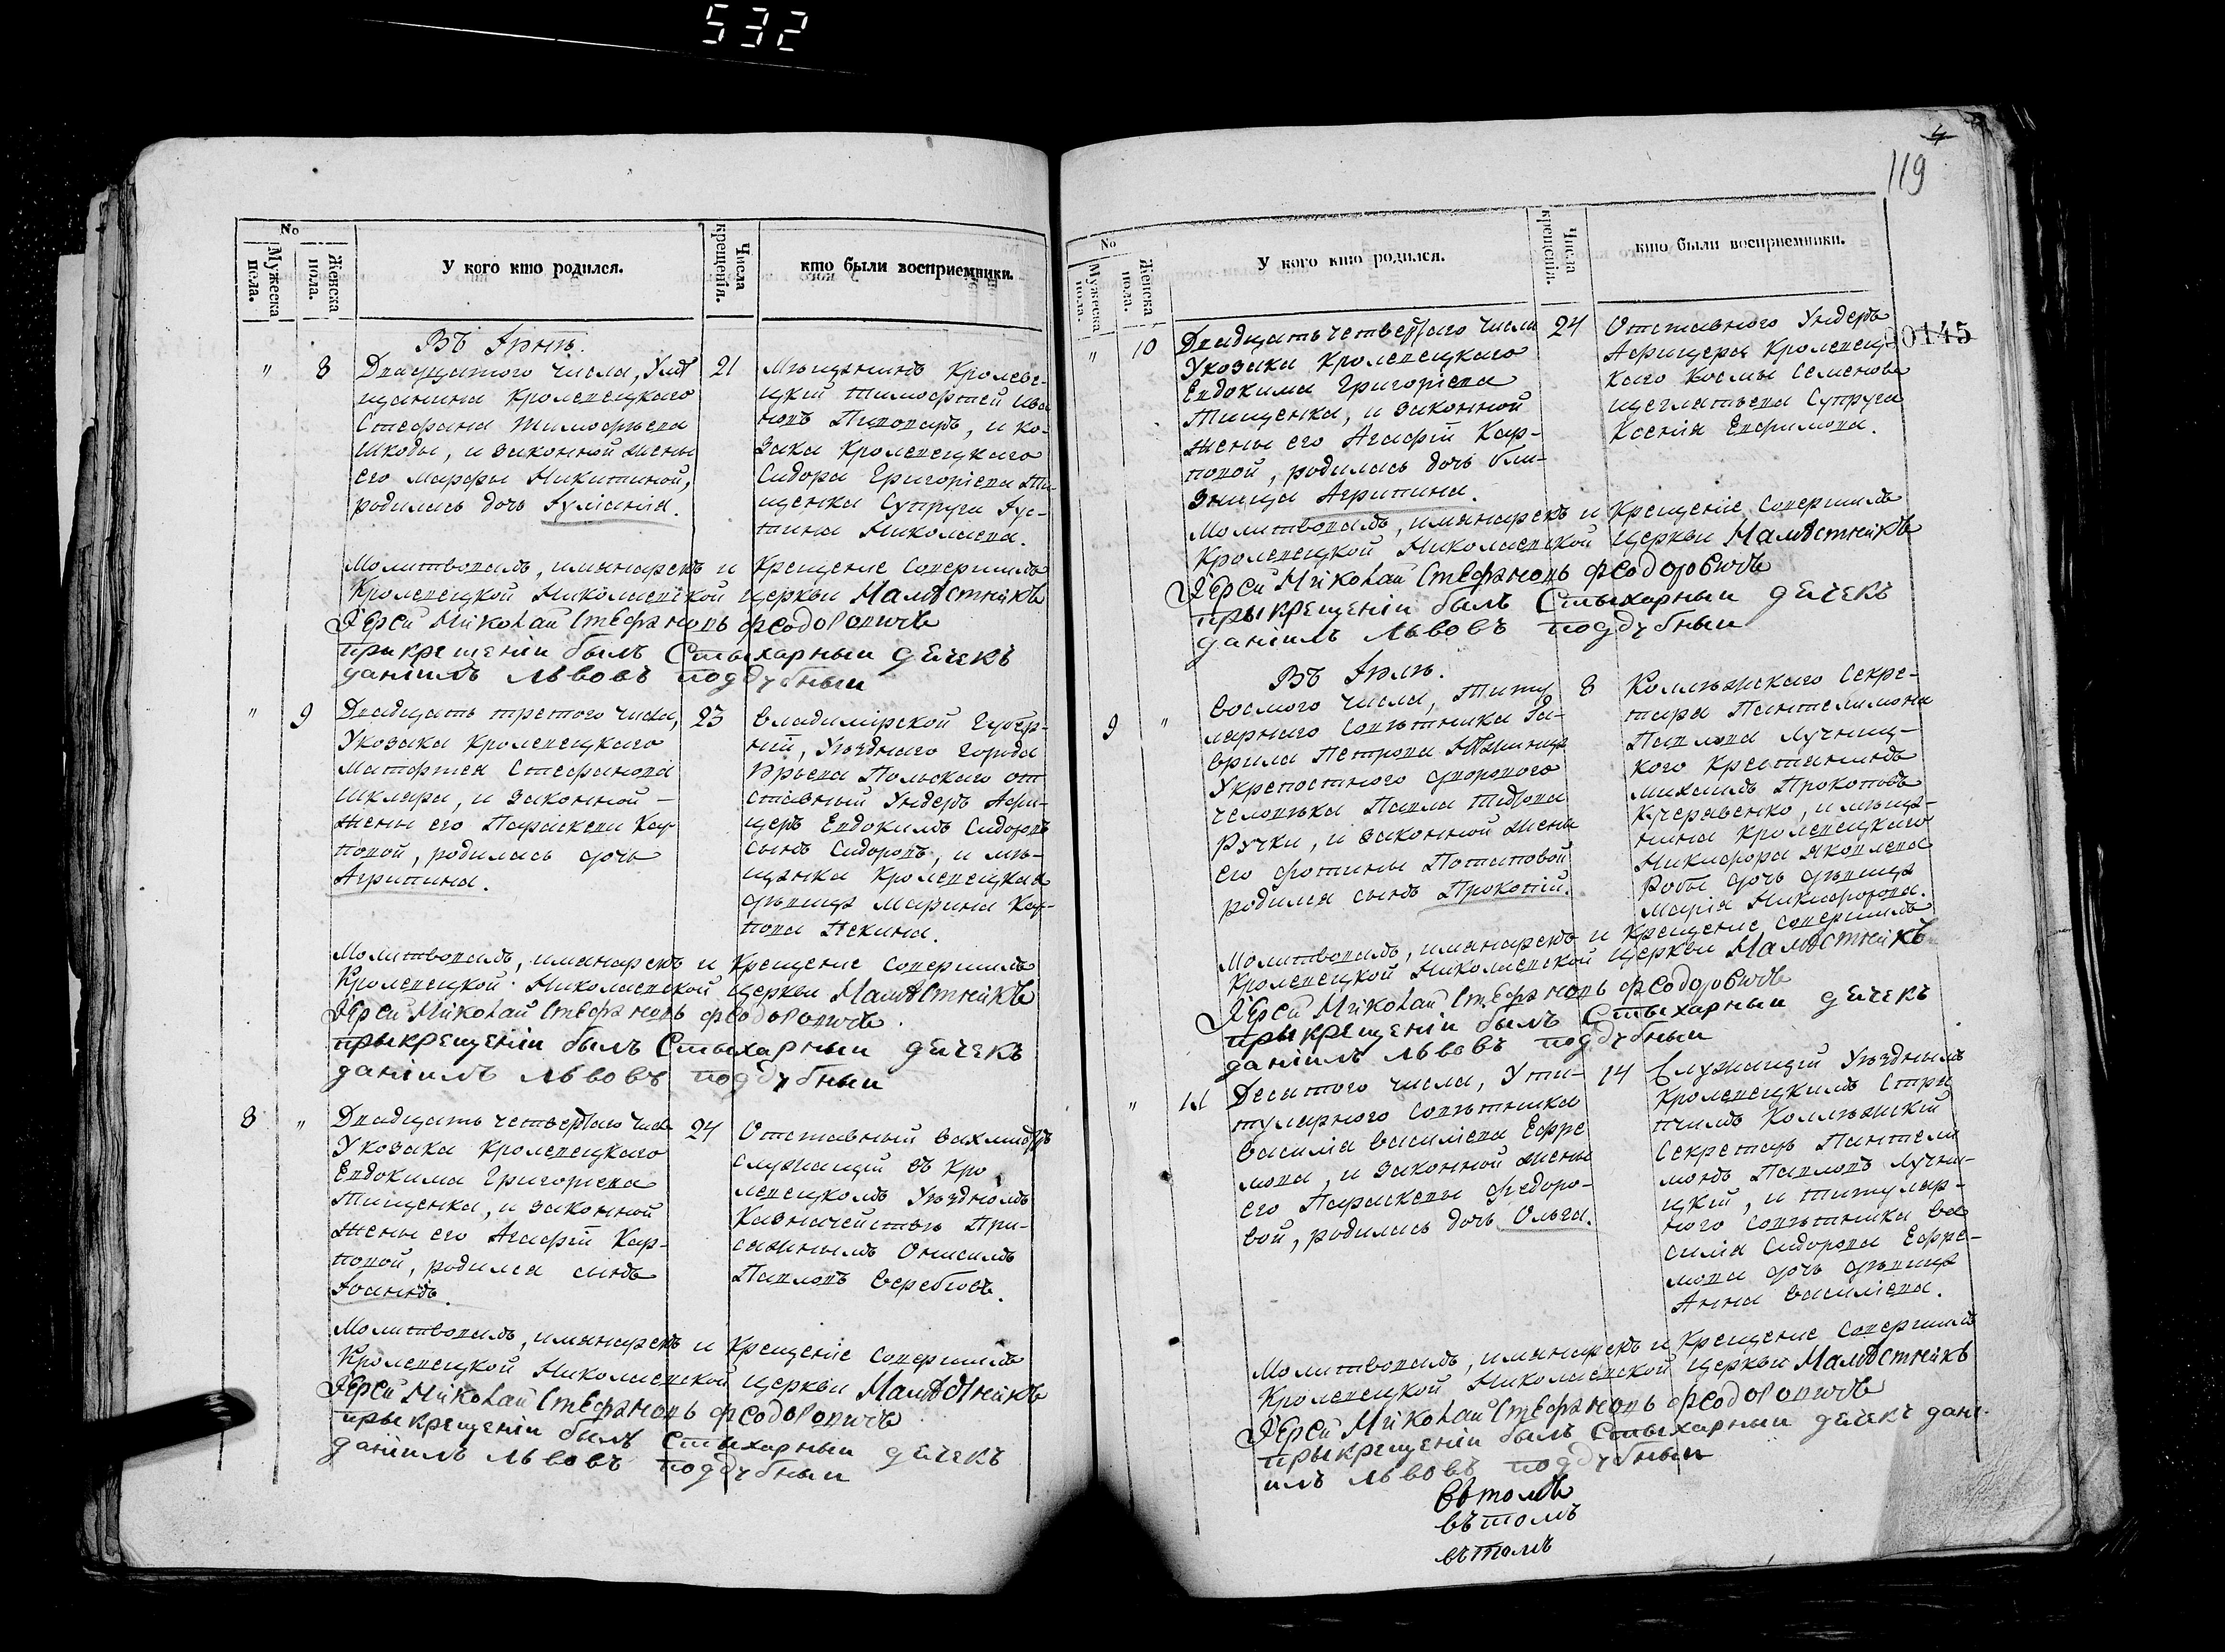 532
№
Мужеска пола.
Женска пола.
У кого кто родился.
Числа крещенія.
кто были восприемники.
Въ Іюнѣ.
" 8
Двадцатого числа, Умѣ
щанина Кролевецкаго
Стефана Тимофѣева
Шкоды, и законной жены
его Марфы Никитиной,
родилась дочь Іуліанія.
21
Мѣщанинъ Кролеве-
цкій Тимофтей Ива
новъ Пивоваръ, и ко-
зака Кролевецкаго
Сидора Григоріева Ти-
щенка Супруга Іус-
тина Николаева.
Молитвовалъ, имянарекъ и Крещение совершилъ
Кролевецкой Николаевской церкви Намѣстникъ
Іерей Николай Стефановъ Феодоровичъ
при крещеніи былъ Стыхарный дячекъ
даніилъ Львовъ поддубный
" 9
Двадцать третого числа,
Укозака Кролевецкаго
Матфтея Стефанова
Шкляра, и законной -
жены его Параскеви Кар
повой, родилась дочь
Агрипина.
23
Владимірской Губер-
ніи, Уѣзднаго города
Юрьева Польскаго от
ставный Ундеръ Афи-
церъ Евдокимъ Сидоровъ
сынъ Сидоровъ, и мѣ-
щанка Кролевецкая
дѣвица Марина Кар-
пова Пекина.
Молитвовалъ, имянарекъ и Крещение совершилъ
Кролевецкой Николаевской церкви Намѣстникъ
Іерей Николай Стефановъ Феодоровичъ.
при крещеніи былъ Стыхарный дячекъ
даніилъ Львовъ поддубный
8 "
Двадцать четвертаго числа
Укозака Кролевецкаго
Евдокима Григоріева
Тищенка, и законной
жены его Агафіи Кар-
повой, родился сынъ
Іоаннъ.
24
Отставный вахмистръ
служащій въ Кро
левецкомъ Уѣздномъ
Казначействѣ При-
сяжнымъ Онисимъ
Павловъ Веребіовъ.
Молитвовалъ, имянарекъ и Крещеніе совершилъ
Кролевецкой Николаевской церкви Намѣстникъ
Іерей Николай Стефановъ Феодоровичъ
при крещеніи былъ Стыхарный дячекъ
даніилъ Львовъ поддубный
4
119
00145
№
Мужеска пола.
Женска пола.
У кого кто родился.
Числа крещенія.
кто были восприемники.
" 10
Двадцать четвертаго числа
Укозака Кролевецкаго
Евдокима Григоріева
Тищенка, и законной
жены его Агафіи Кар-
повой, родилась дочь бли-
зница Агрипина.
24
Отставного Ундеръ
Афицера Кролевец
каго Космы Семенова
Щеглятьева Супруга
Ксенія Евфимова.
Молитвовалъ, имянарекъ и Крещеніе совершилъ
Кролевецкой Николаевской церкви Намѣстникъ
Іерей Николай Стефановъ Феодоровичъ
при крещеніи былъ Стыхарный дячекъ
даніилъ Львовъ поддубный
Въ Іюлѣ.
9 "
Восмого числа, Титу
лярнаго Совѣтника Га-
врила Петрова
Укрепостного дворового
человѣка Павла Титова
Ручки, и законной жены
его Фотины Потаповой
родился сынъ Прокопій.
8
Коллѣжскаго Секре-
таря Пантелимона
Павлова Лучниц-
кого крестьянинъ
михаилъ Прокоповъ
Кучеравенко, и мѣща-
нина Кролевецкаго
Никифора Яковлева
Робы дочь дѣвица
Марія Никифорова.
Молитвовалъ, имянарекъ и Крещение совершилъ
Кролевецкой Николаевской церкви Намѣстникъ
Іерей Николай Стефановъ Феодоровичъ
при крещеніи былъ Стыхарный дячекъ
даніилъ Львовъ поддубный
" 11
Десятого числа, Ути-
тулярного Совѣтника
Василія Василіева Ефре
мова, и законной жены
его Параскевы Федоро-
вой, родилась дочь Ольга.
14
Служащій Уѣзднымъ
Кролевецкимъ Стря
пчимъ Коллѣжскій
Секретарь Пантели
монъ Павловъ Лучни-
цкій, и Титуляр-
ного Совѣтника Ва
силія Сидорова Ефре-
мова дочь дѣвица
Анна Василіева.
Молитвовалъ, имянарекъ и Крещение совершилъ
Кролевецкой Николаевской церкви Намѣстникъ
Іерей Николай Стефановъ Феодоровичъ
при крещеніи былъ Стыхарный дячекъ дані-
илъ Львовъ поддубный
Вътомъ
вътомъ
вътомъ